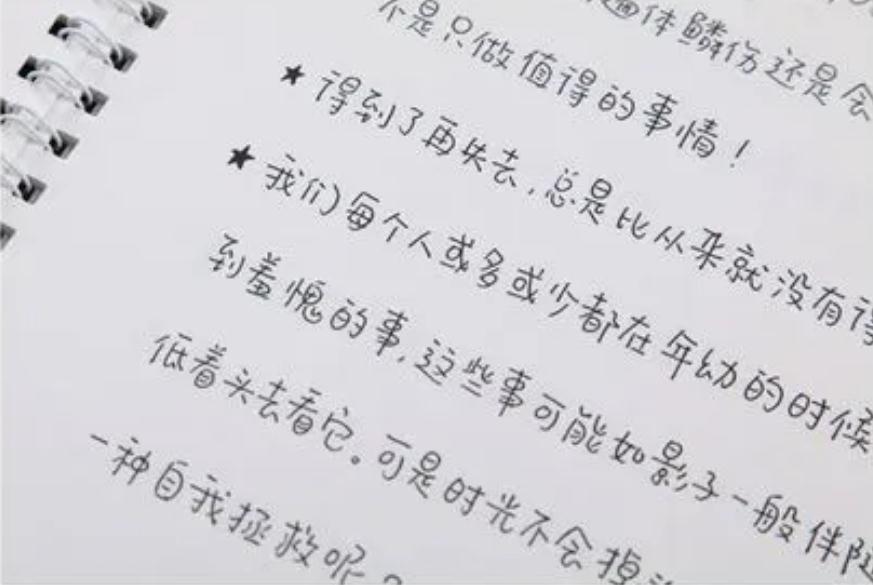 遍体鳞伤还是会
不是只做值得的事情！
★ 得到了再失去,总是比从来就没有得
★ 我们每个人或多或少都在年幼的时候
到羞愧的事,这些事可能如影子一般伴随
低着头去看它。可是时光不会掉
一种自我拯救呢?